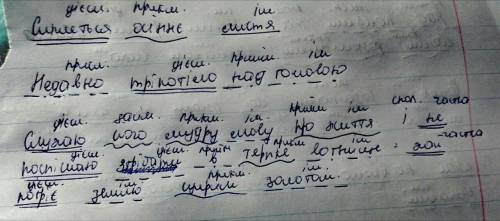 дієсл. прикм. ім
Сиплеться осіннє листя
присл. дієсл. прийм. ім
Недавно тріпотіло над головою
дієсл. займ. прикм. ім. прийм ім спол. частка
Слухаю його мудру мову про життя і не
дієсл. дієсл. прийм прикм ім частка
поспішаю в терпке вогнище - хай
дієсл. ім прикм.
погріє землю щирим золотом.